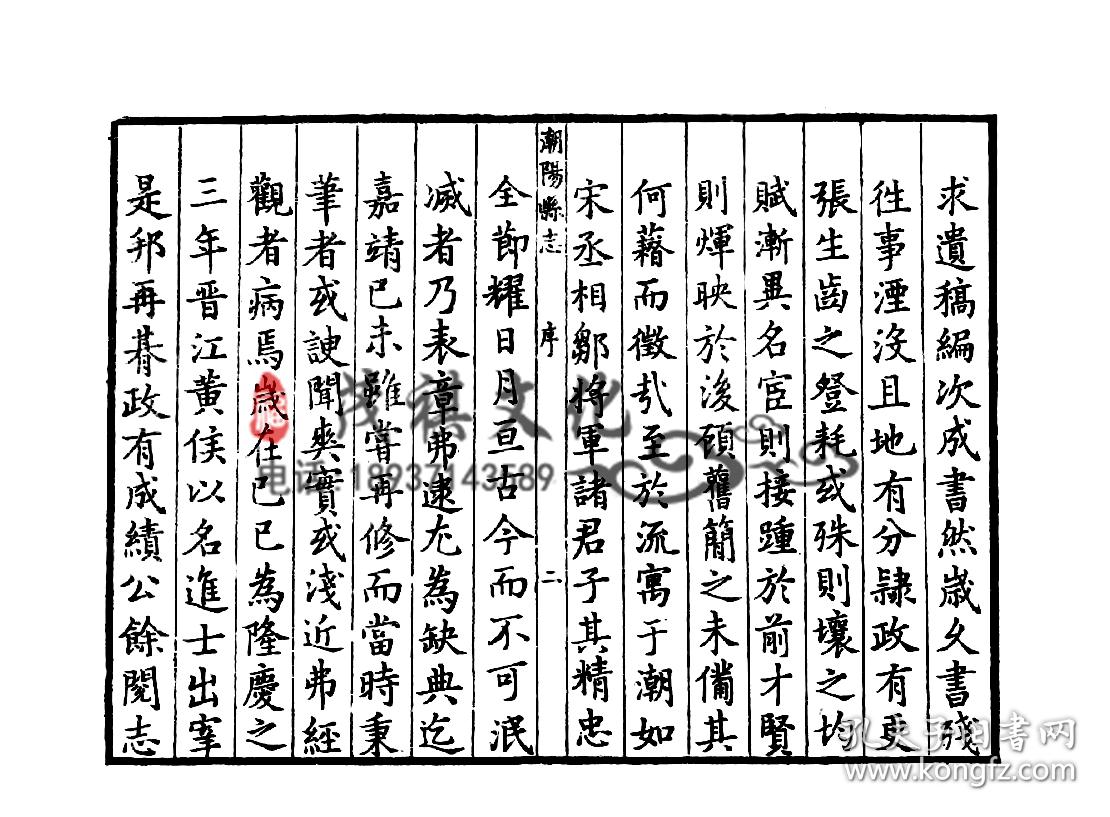 求遺稿編次成書然歲久書殘
徃事湮沒且地有分隷政有更
張生齒之登耗或殊則壤之均
賦漸異名宦則接踵於前才賢
則煇映於後碩舊簡之未備其
何藉而徵㢤至於流寓于潮如
宋丞相鄒將軍諸君子其精忠
全節耀日月亘古今而不可泯
潮陽縣志
序
二
滅者乃表章弗逮尤為缺典迄
嘉靖己未雖嘗再修而當時秉
筆者或諛聞爽實或淺近弗經
觀者病焉歲在己巳為隆慶之
三年晋江黃侯以名進士出宰
是邦再朞政有成績公餘閱志
找祺文化
电话:18937143689
孔夫子旧书网
www.kongfz.com